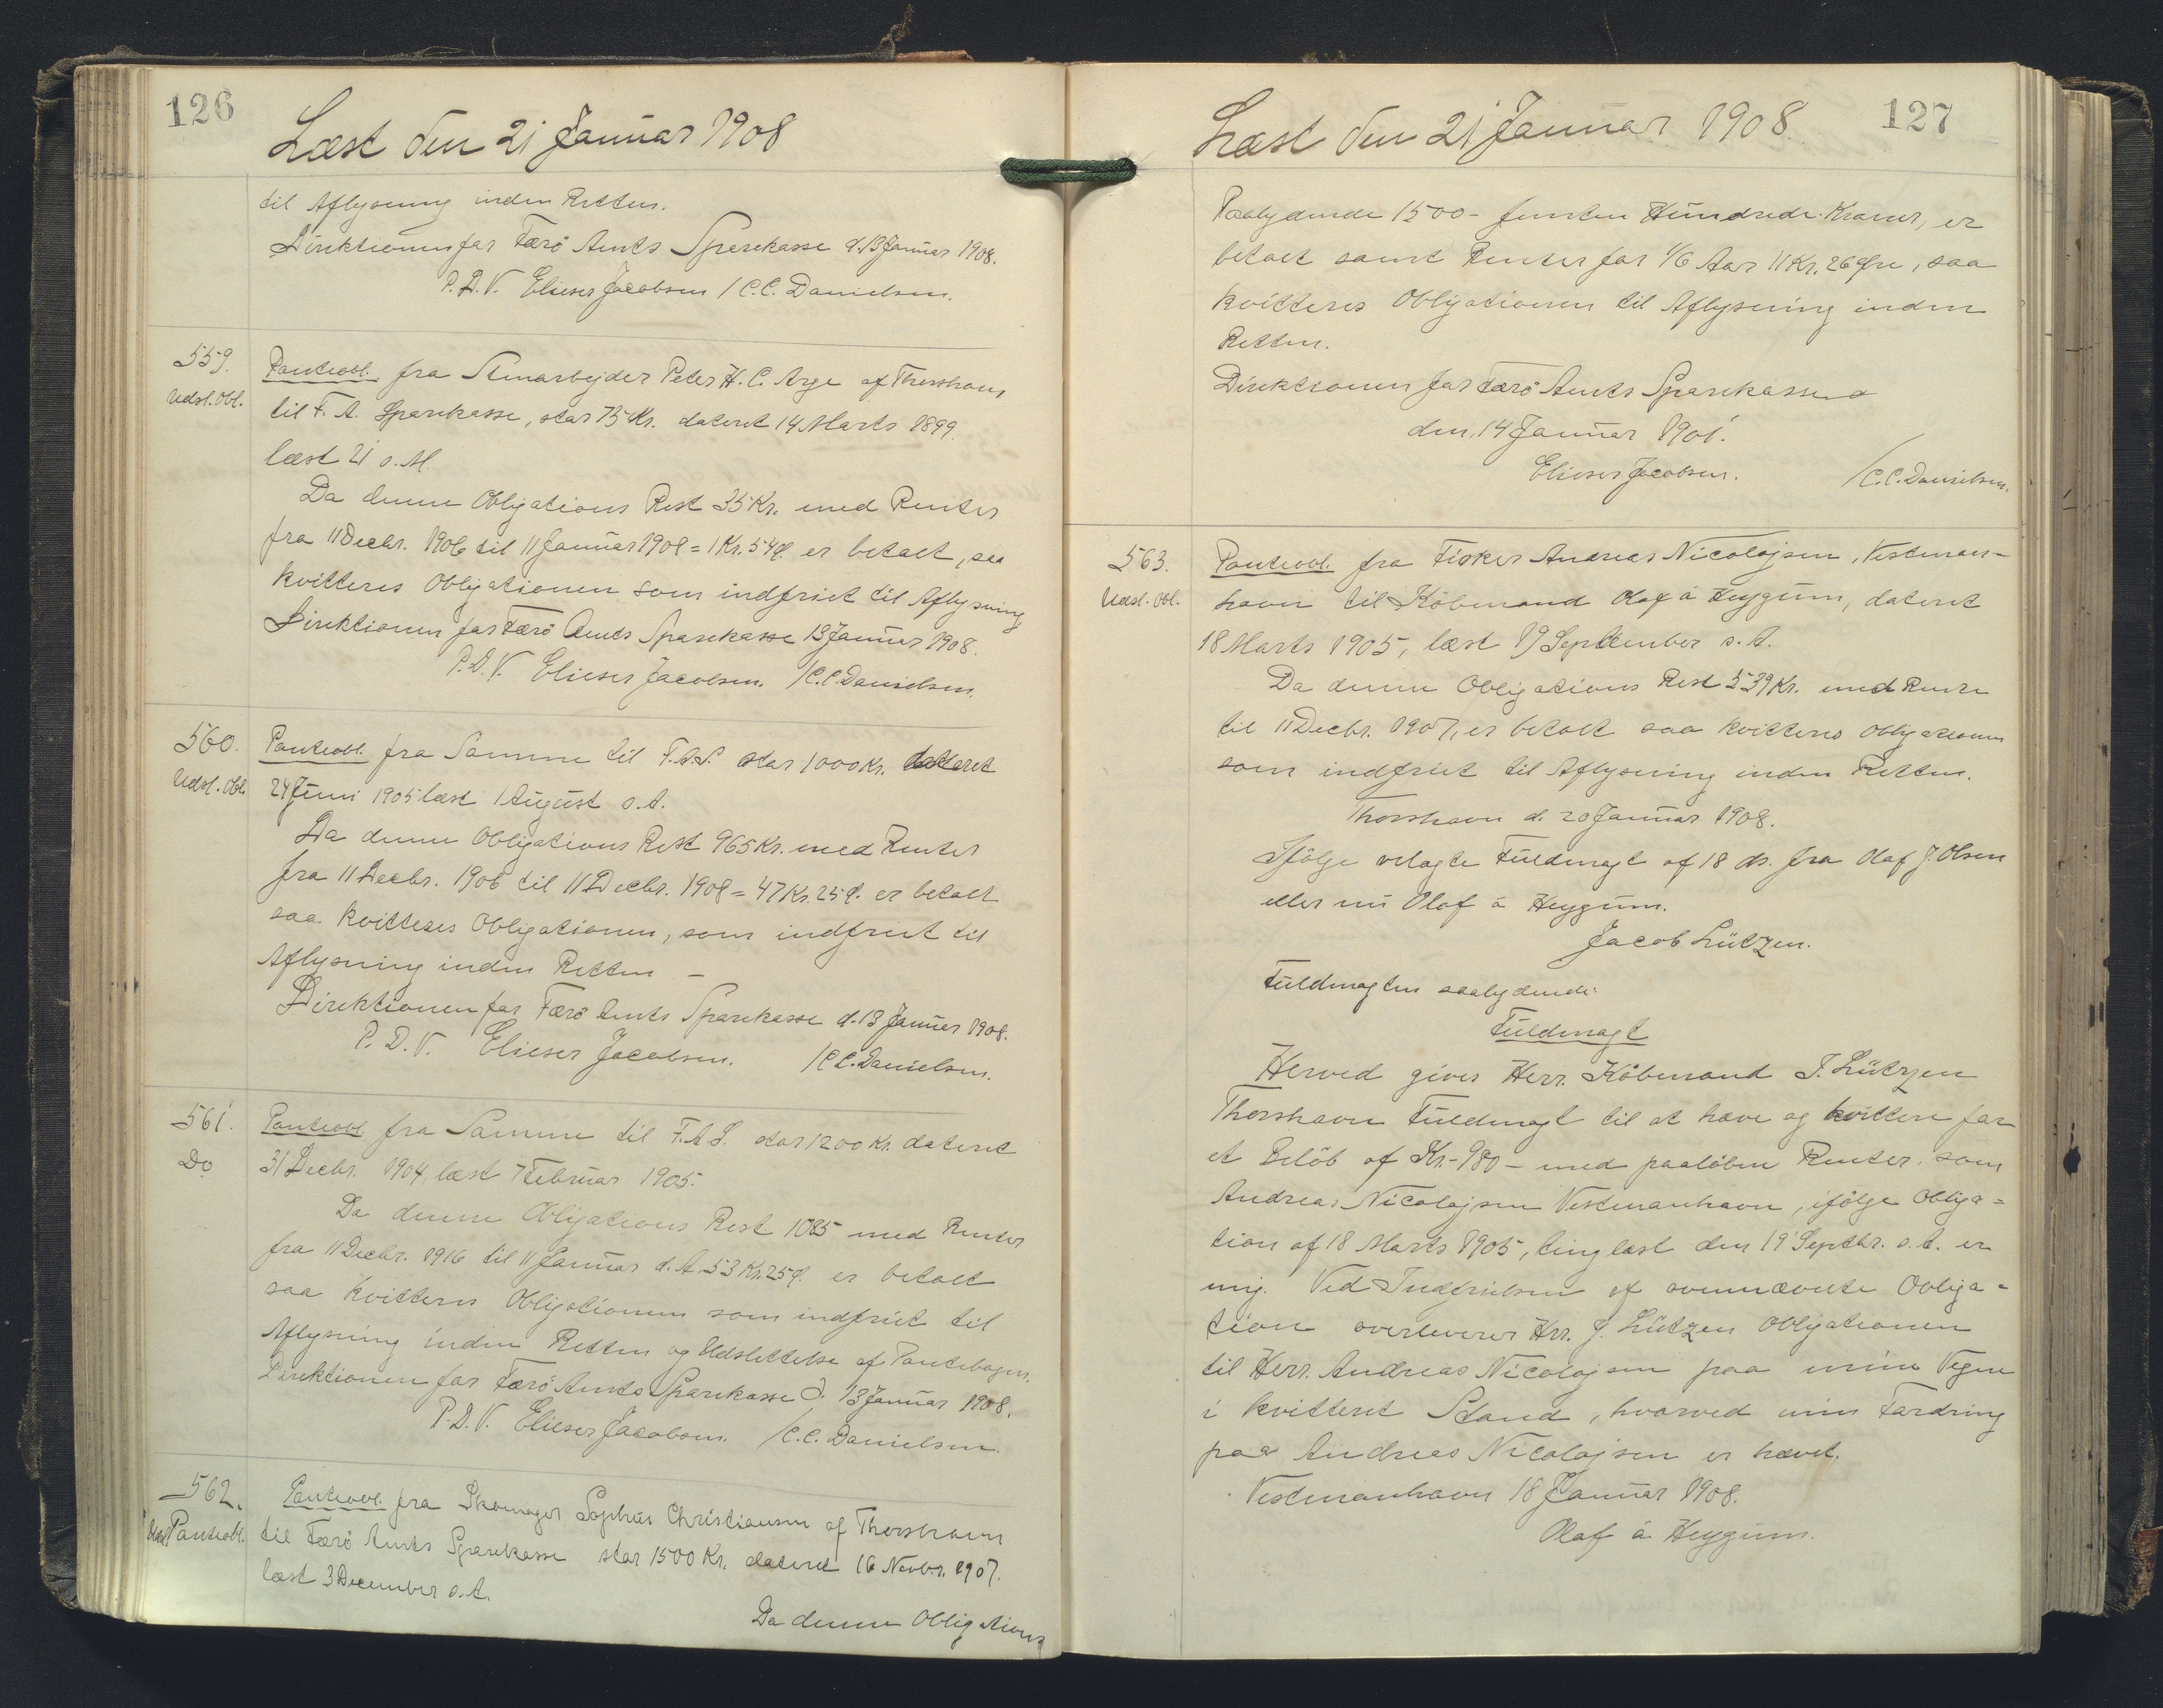 126
Læst den 21 Januar 1908
til Aflysning inden Retten.
Direktionen for Færö Amts Sparekasse d. 13 Januar 1908.
P. D. V. Elieser Jacobsen / C. C. Danielsen.
559.
Udsl. Obl.
Panteobl. fra Stenarbejder Peter H. C. Arge af Thorshavn
til F. A. Sparekasse, stor 75 Kr. dateret 14 Marts 1899.
læst 21 s. M.
Da denne Obligations Rest 35 Kr. med Renter
fra 11 Decbr. 1906 til 11 Januar 1908 = 1 Kr. 54 Ø. er betalt, saa
kvitteres Obligationen som indfriet til Aflysning
Direktionen for Færö Amts Sparekasse 13 Januar 1908.
P. D. V. Elieser Jacobsen. / C. C. Danielsen.
560.
Udsl. Obl.
Panteobl. fra Samme til F. A. S. stor 1000 Kr. dateret
24 Juni 1905 læst 1 August s. A.
Da denne Obligations Rest 965 Kr. med Renter
fra 11 Decbr. 1906 til 11 Decbr. 1908 = 47 Kr. 25 Ø. er betalt
saa kvitteres Obligationen, som indfriet til
Aflysning inden Retten –
Direktionen for Færö Amts Sparekasse d. 13 Januar 1908.
P. D. V. Elieser Jacobsen. / C. C. Danielsen.
561.
Do
Panteobl. fra Samme til F. A. S. stor 1200 Kr. dateret
31 Decbr. 1904, læst 7 Februar 1905.
Da denne Obligations Rest 1085 med Renter
fra 11 Decbr. 1916 til 11 Januar d. A. 53 Kr. 25 Ø. er betalt
saa kvitteres Obligationen som indfriet til
Aflysning inden Retten og Udslettelse af Pantebogen.
Direktionen for Færö Amts Sparekasse d. 13 Januar 1908.
P. D. V. Elieser Jacobsen. / C. C. Danielsen.
562.
Panteobl.
Panteobl. fra Skomager Sophus Christiansen af Thorshavn
til Færö Amts Sparekasse stor 1500 Kr. dateret 16 Novbr. 1907.
læst 3 December s. A.
Da denne Obligations
127
Læst den 21 Januar 1908
Paalydende 1500 - femten Hundrede Kroner, er
betalt samt Renter for 1/6 Aar 11 Kr. 26 Øre, saa
kvitteres Obligationen til Aflysning inden
Retten.
Direktionen for Færö Amts Sparekasse
den 14 Januar 1901.
Elieser Jacobsen. / C. C. Danielsen.
563.
Udsl. Obl.
Panteobl. fra Fisker Andreas Nicolajsen, Vestman-
havn til Köbmand Olaf á Heygum, dateret
18 Marts 1905, læst 19 September s. A.
Da denne Obligations Rest 539 Kr. med Rente
til 11 Decbr. 1907, er betalt saa kvitteres Obligationen
som indfriet til Aflysning inden Retten.
Thorshavn d. 20 Januar 1908.
Ifölge vedlagte Fuldmagt af 18 ds. fra Olaf J. Olsen
eller nu Olaf á Heygum.
Jacob Lützen.
Fuldmagten saalydende:
Fuldmagt
Herved gives Herr. Köbmand J. Lützen
Thorshavn Fuldmagt til at hæve og kvittere for
et Belöb af Kr. 980 - med paalöben Renter, som
Andreas Nicolajsen Vestmanhavn, ifölge Obliga=
tion af 18 Marts 1905, tinglæst den 19 Septbr. s. A. er
mig. Ved Indfrielsen af ovennævnte Obliga=
tion overleverer Hrr. J. Lützen Obligationen
til Herr. Andreas Nicolajsen paa mine Vegne
i kvitteret Stand, hvorved min Fordring
paa Andreas Nicolajsen er hævet.
Vestmanhavn 18 Januar 1908.
Olaf á Heygum.